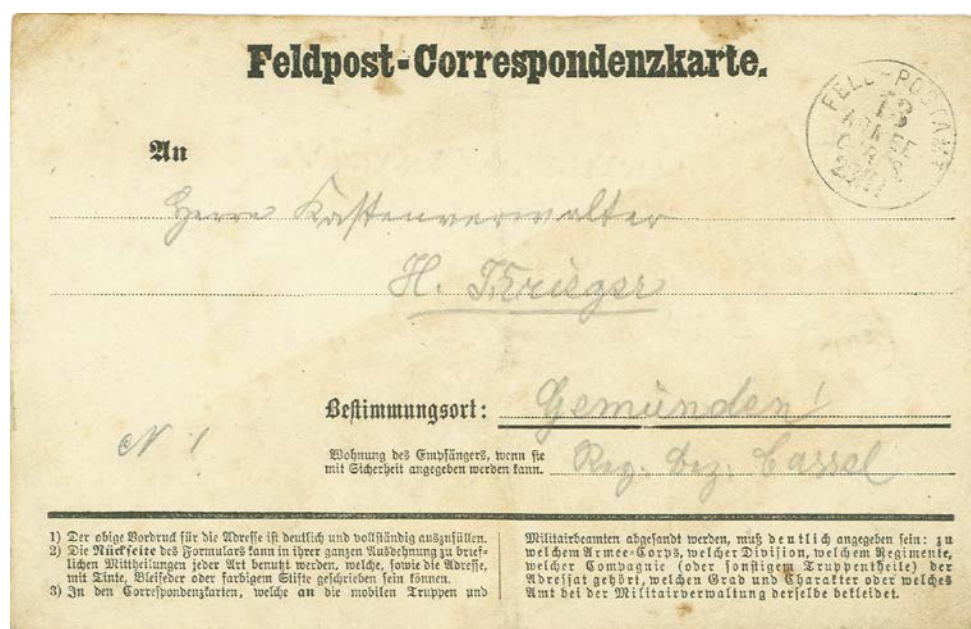 Feldpost-Correspondenzkarte.
FELD-POSTAMT
An
Herrn Kastenverwalter
H. Krieger
Bestimmungsort: Gemünden!
N 1
Wohnung des Empfängers, wenn sie
mit Sicherheit angegeben werden kann. Reg. Bez. Cassel
1) Der obige Vordruck für die Adresse ist deutlich und vollständig auszufüllen.
2) Die Rückseite des Formulars kann in ihrer ganzen Ausdehnung zu brief-
lichen Mittheilungen jeder Art benutzt werden, welche, sowie die Adresse,
mit Tinte, Bleifeder oder farbigem Stifte geschrieben sein können.
3) In den Correspondenzkarten, welche an die mobilen Truppen und
Militairbeamten abgesandt werden, muß deutlich angegeben sein: zu
welchem Armee-Corps, welcher Division, welchem Regimente,
welcher Compagnie (oder sonstigem Truppentheile) der
Adressat gehört, welchen Grad und Charakter oder welches
Amt bei der Militairverwaltung derselbe bekleidet.